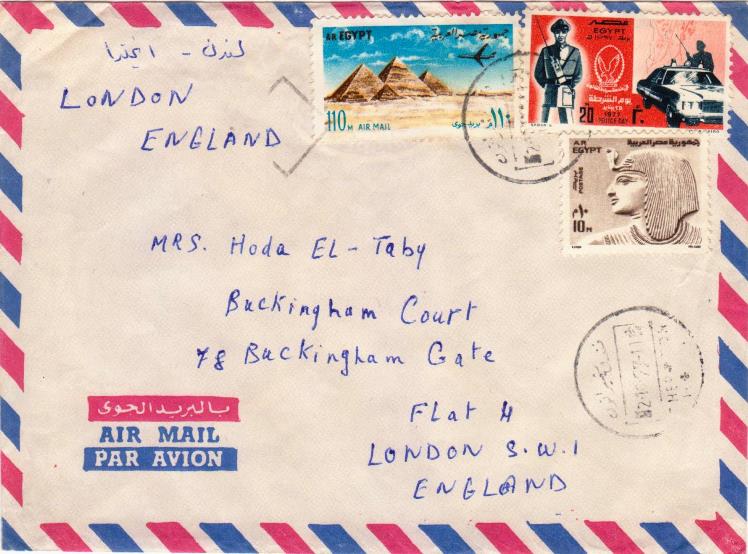 لندن - انجلترا
LONDON
ENGLAND
AR EGYPT جمهورية مصر العربية
110 M AIR MAIL بريد جوى ١١٠ م
مصر
EGYPT
يوم الشرطة
20 1977 POLICE DAY ٢٠
AR EGYPT جمهورية مصر العربية
POSTAGE بريد
١٠ م
10 M
MRS. Hoda EL-Taby
Buckingham Court
78 Buckingham Gate
Flat 4
LONDON S.W.1
ENGLAND
بالبريد الجوى
AIR MAIL
PAR AVION